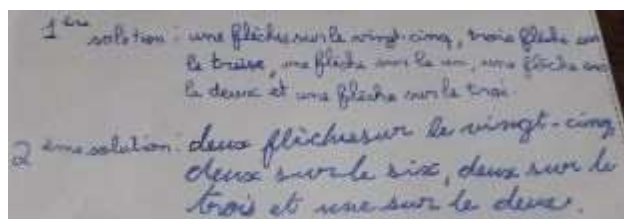 1ère solution : une flèche sur le vingt-cinq, trois flèche sur
le treize, une flèche sur le un, une flèche sur
le deux et une flèche sur le troi.
2ème solution : deux flèches sur le vingt-cinq
deux sur le six, deux sur le
trois et une sur le deux.